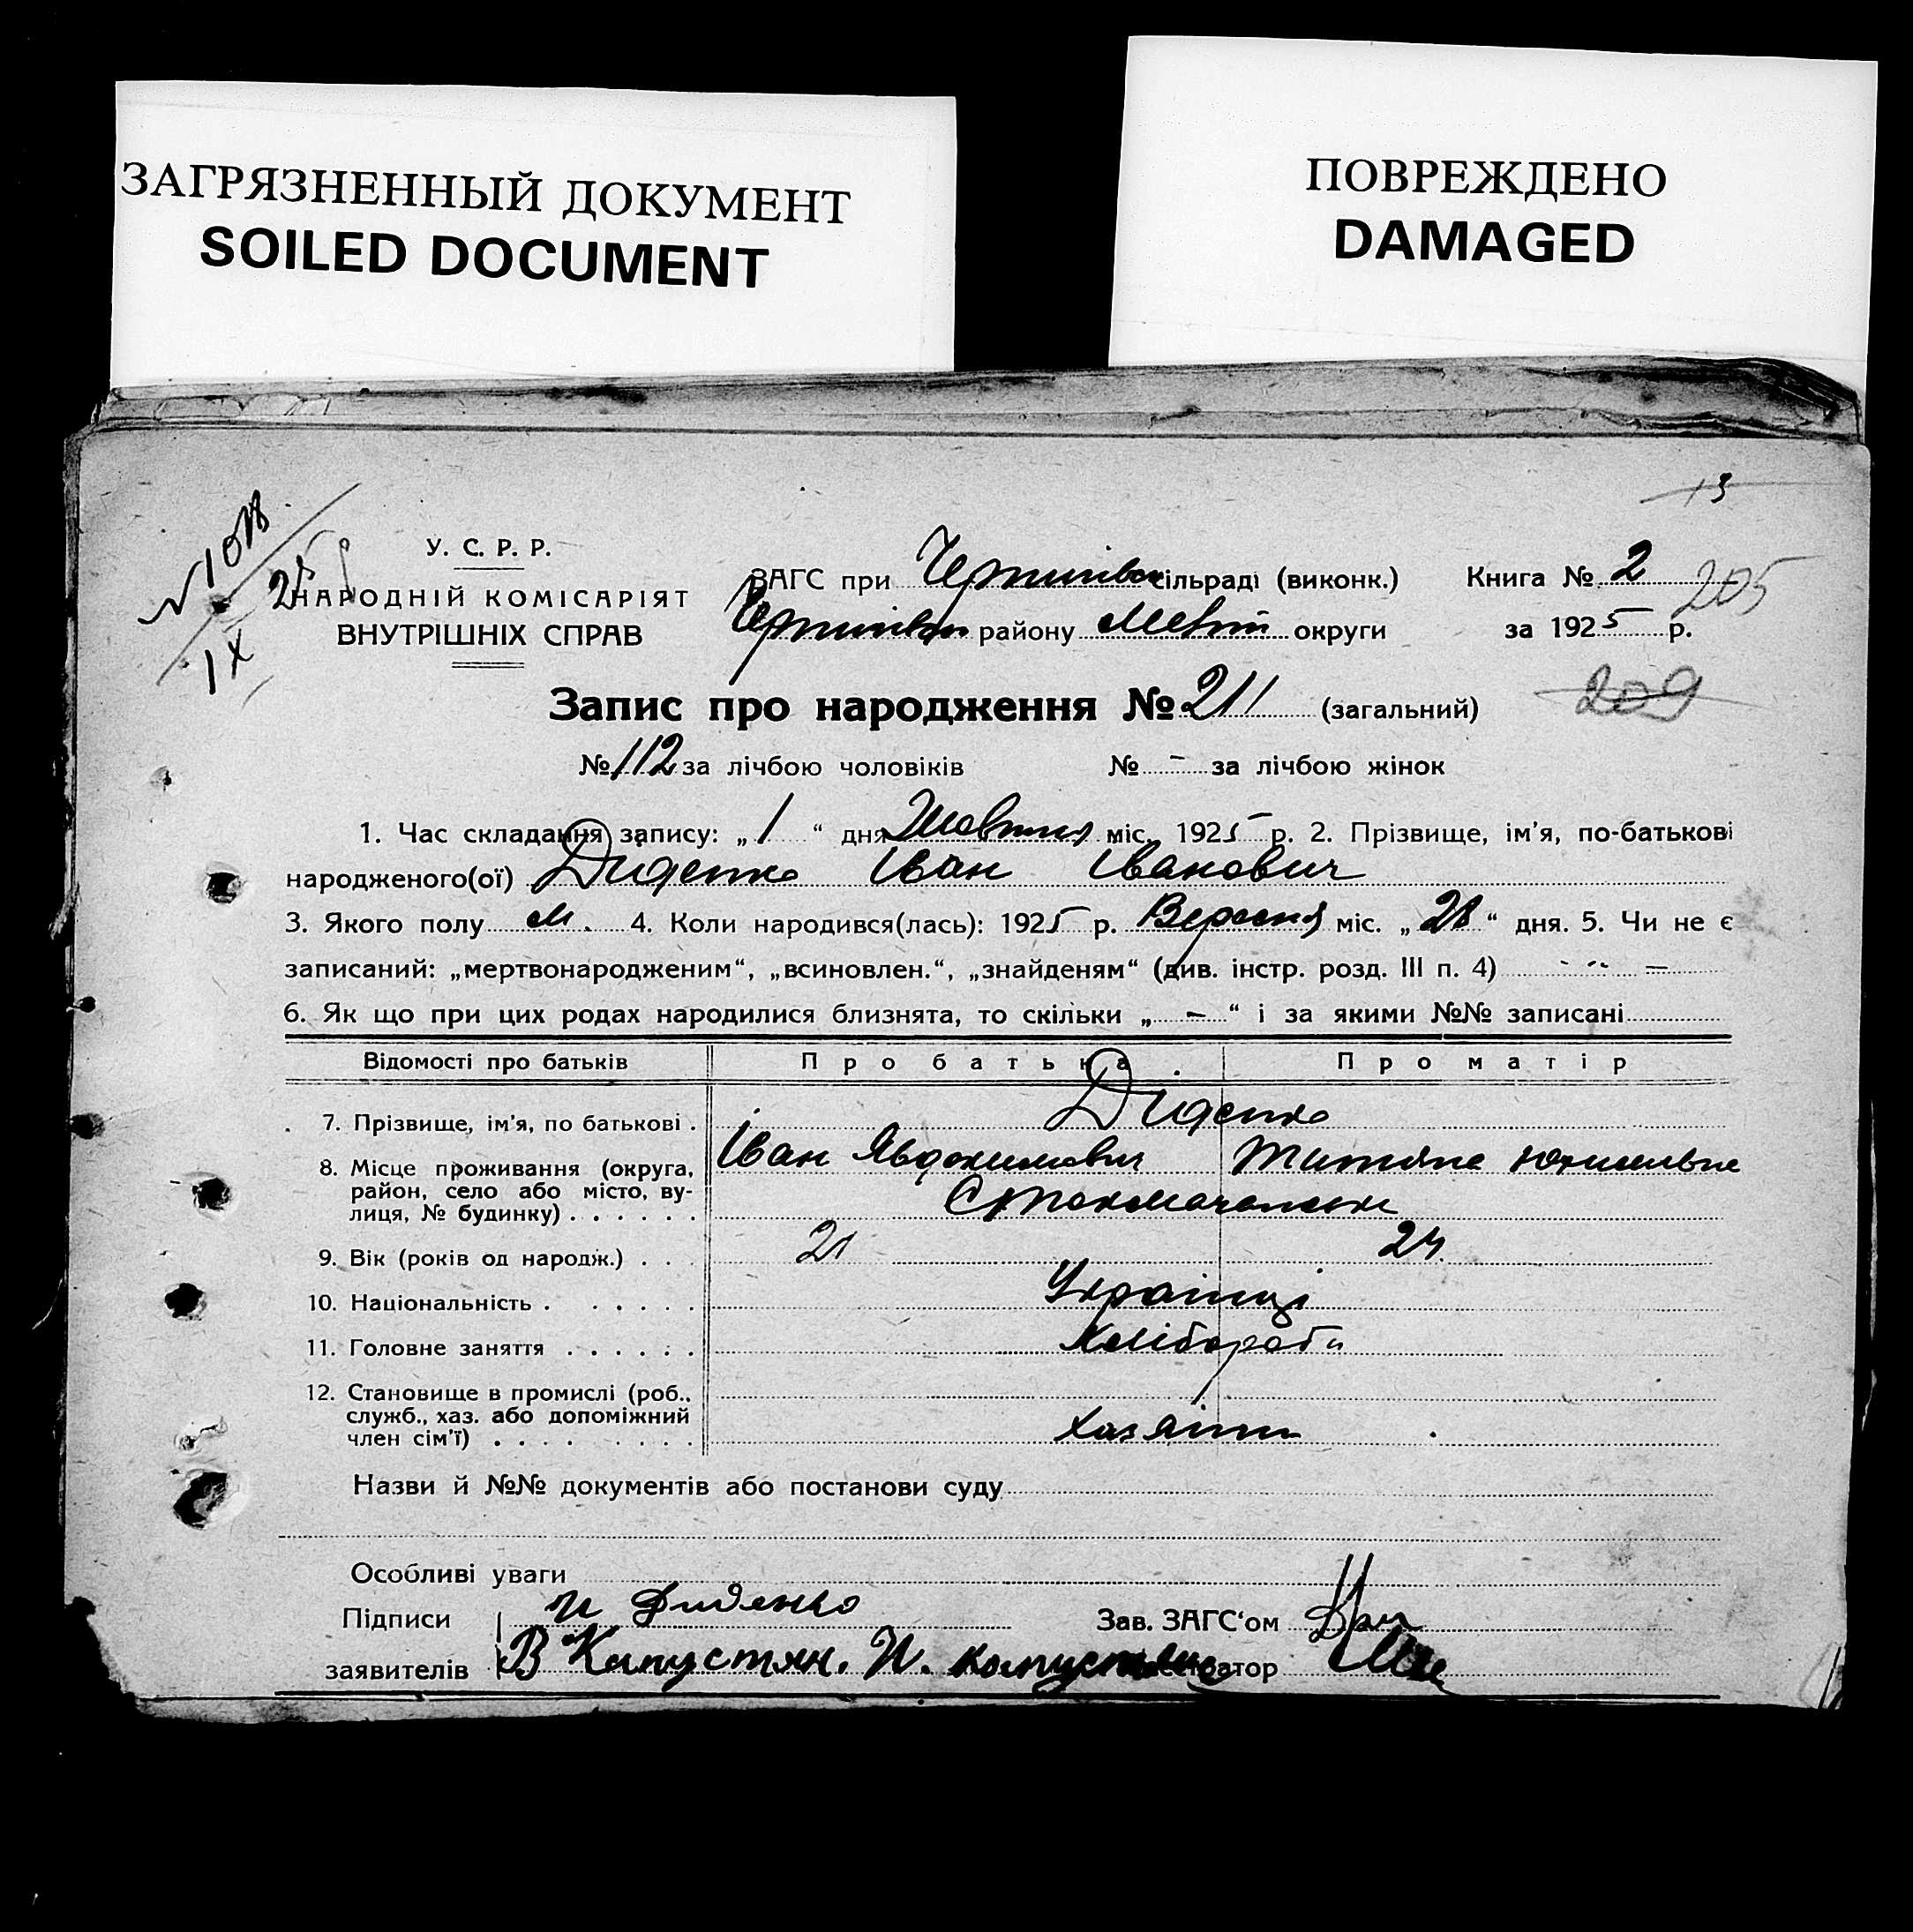 ЗАГРЯЗНЕННЫЙ ДОКУМЕНТ
SOILED DOCUMENT
ПОВРЕЖДЕНО
DAMAGED
У. С. Р. Р.
НАРОДНІЙ КОМІСАРІЯТ
ВНУТРІШНІХ СПРАВ
ЗАГС при сільраді (виконк.)
району округи
Книга № 2
205
за 1925 р.
Запис про народження № 211 (загальний)
209
№ 112 за лічбою чоловіків № - за лічбою жінок
1. Час складання запису: „ 1 “ дня Жовтня міс. 1925 р. 2. Прізвище, ім'я, по-батькові
народженого(ої) Диденко Іван Іванович
3. Якого полу м. 4. Коли народився(лась): 1925 р. Вересня міс. „ 28 “ дня. 5. Чи не є
записаний: „мертвонародженим“, „всиновлен.“, „знайденям“ (див. інстр. розд. III п. 4) —
6. Як що при цих родах народилися близнята, то скільки „ — “ і за якими №№ записані
Відомості про батьків Про батька Про матір
7. Прізвище, ім'я, по батькові . Диденко
Іван Явдокимович
8. Місце проживання (округа,
район, село або місто, ву-
лиця, № будинку) . . . . . .
9. Вік (років од народж.) . . . 21 24
10. Національність . . . . . . Українці
11. Головне заняття . . . . . . Хлібороби
12. Становище в промислі (роб.,
служб., хаз. або допоміжний
член сім'ї) . . . . . . . .
Назви й №№ документів або постанови суду
Особливі уваги
Підписи И Диденко Зав. ЗАГС'ом
заявителів В Капустян. И. Капустян